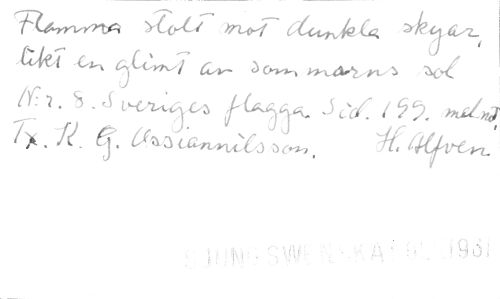 Flamma stolt mot dunkla skyar,
likt en glimt av sommarns sol
N:r. 8. Sveriges flagga. Sid. 199. med not.
Tx. K. G. Ossiannilsson. H. Alfvén
SJUNG SWENSKA 1931